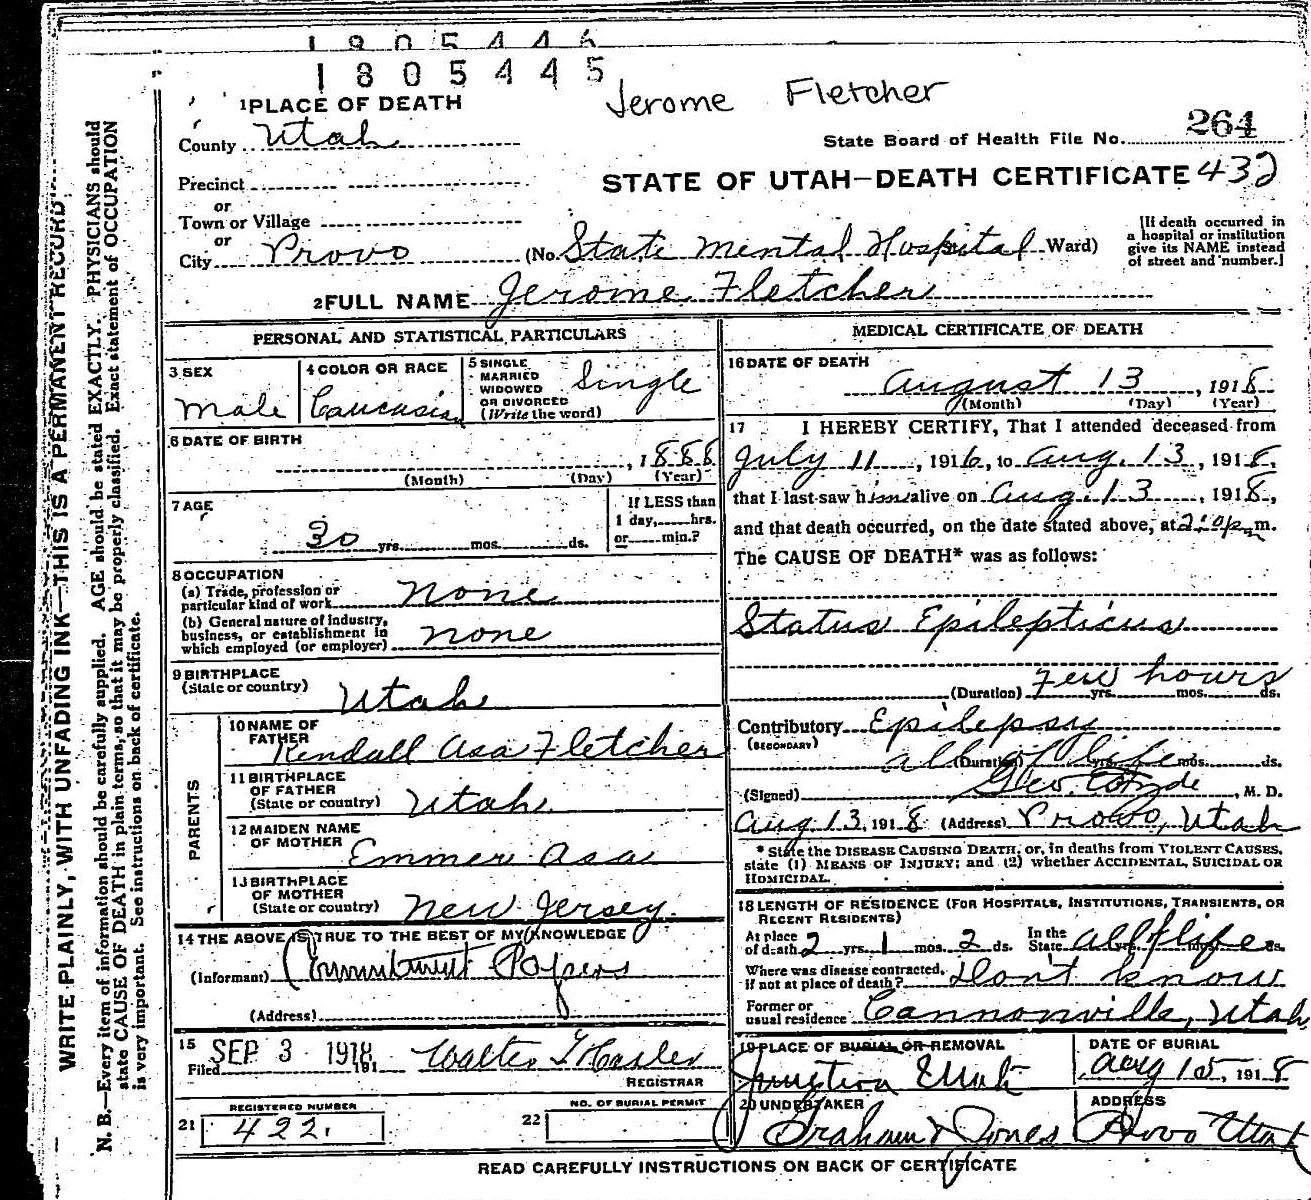 1805446
1805445
Jerome Fletcher
1 PLACE OF DEATH
County Utah
State Board of Health File No. 264
Precinct
STATE OF UTAH—DEATH CERTIFICATE 432
or
Town or Village
or
City Provo (No. State Mental Hospital Ward)
[If death occurred in
a hospital or institution
give its NAME instead
of street and number.]
2 FULL NAME Jerome Fletcher
PERSONAL AND STATISTICAL PARTICULARS
3 SEX
Male
4 COLOR OR RACE
Caucasian
5 SINGLE
MARRIED
WIDOWED
OR DIVORCED
(Write the word)
Single
6 DATE OF BIRTH
, 1888
(Month) (Day) (Year)
7 AGE
30 yrs. mos. ds.
If LESS than
1 day, hrs.
or min.?
8 OCCUPATION
(a) Trade, profession or
particular kind of work none
(b) General nature of industry,
business, or establishment in
which employed (or employer) none
9 BIRTHPLACE
(State or country) Utah
PARENTS
10 NAME OF
FATHER Kendall Asa Fletcher
11 BIRTHPLACE
OF FATHER
(State or country) Utah
12 MAIDEN NAME
OF MOTHER Emmer Asa
13 BIRTHPLACE
OF MOTHER
(State or country) New Jersey.
14 THE ABOVE IS TRUE TO THE BEST OF MY KNOWLEDGE
(Informant) Commitment Papers
(Address)
15
Filed SEP 3 1918 191 Walter T Hasler
REGISTRAR
REGISTERED NUMBER
21 422.
NO. OF BURIAL PERMIT
22
MEDICAL CERTIFICATE OF DEATH
16 DATE OF DEATH
August 13, 1918
(Month) (Day) (Year)
17 I HEREBY CERTIFY, That I attended deceased from
July 11, 1916, to Aug. 13, 1918,
that I last saw him alive on Aug. 13, 1918,
and that death occurred, on the date stated above, at m.
The CAUSE OF DEATH* was as follows:
Status Epilepticus
(Duration) Few hours yrs. mos. ds.
Contributory Epilepsy
(SECONDARY)
all of life (Duration) yrs. mos. ds.
(Signed) Geo. E. Hyde, M. D.
Aug 13, 1918 (Address) Provo, Utah
* State the DISEASE CAUSING DEATH, or, in deaths from VIOLENT CAUSES,
state (1) MEANS OF INJURY; and (2) whether ACCIDENTAL, SUICIDAL OR
HOMICIDAL.
18 LENGTH OF RESIDENCE (FOR HOSPITALS, INSTITUTIONS, TRANSIENTS, OR
RECENT RESIDENTS)
At place
of death 2 yrs. 1 mos. 2 ds. In the
State all of life ds.
Where was disease contracted,
if not at place of death? Don't know
Former or
usual residence Cannonville, Utah
19 PLACE OF BURIAL OR REMOVAL
Junction Utah
DATE OF BURIAL
Aug 15, 1918
20 UNDERTAKER
Graham & Jones
ADDRESS
Provo Utah
READ CAREFULLY INSTRUCTIONS ON BACK OF CERTIFICATE
WRITE PLAINLY, WITH UNFADING INK—THIS IS A PERMANENT RECORD
N. B.—Every item of information should be carefully supplied. AGE should be stated EXACTLY. PHYSICIANS should
state CAUSE OF DEATH in plain terms, so that it may be properly classified. Exact statement of OCCUPATION
is very important. See instructions on back of certificate.